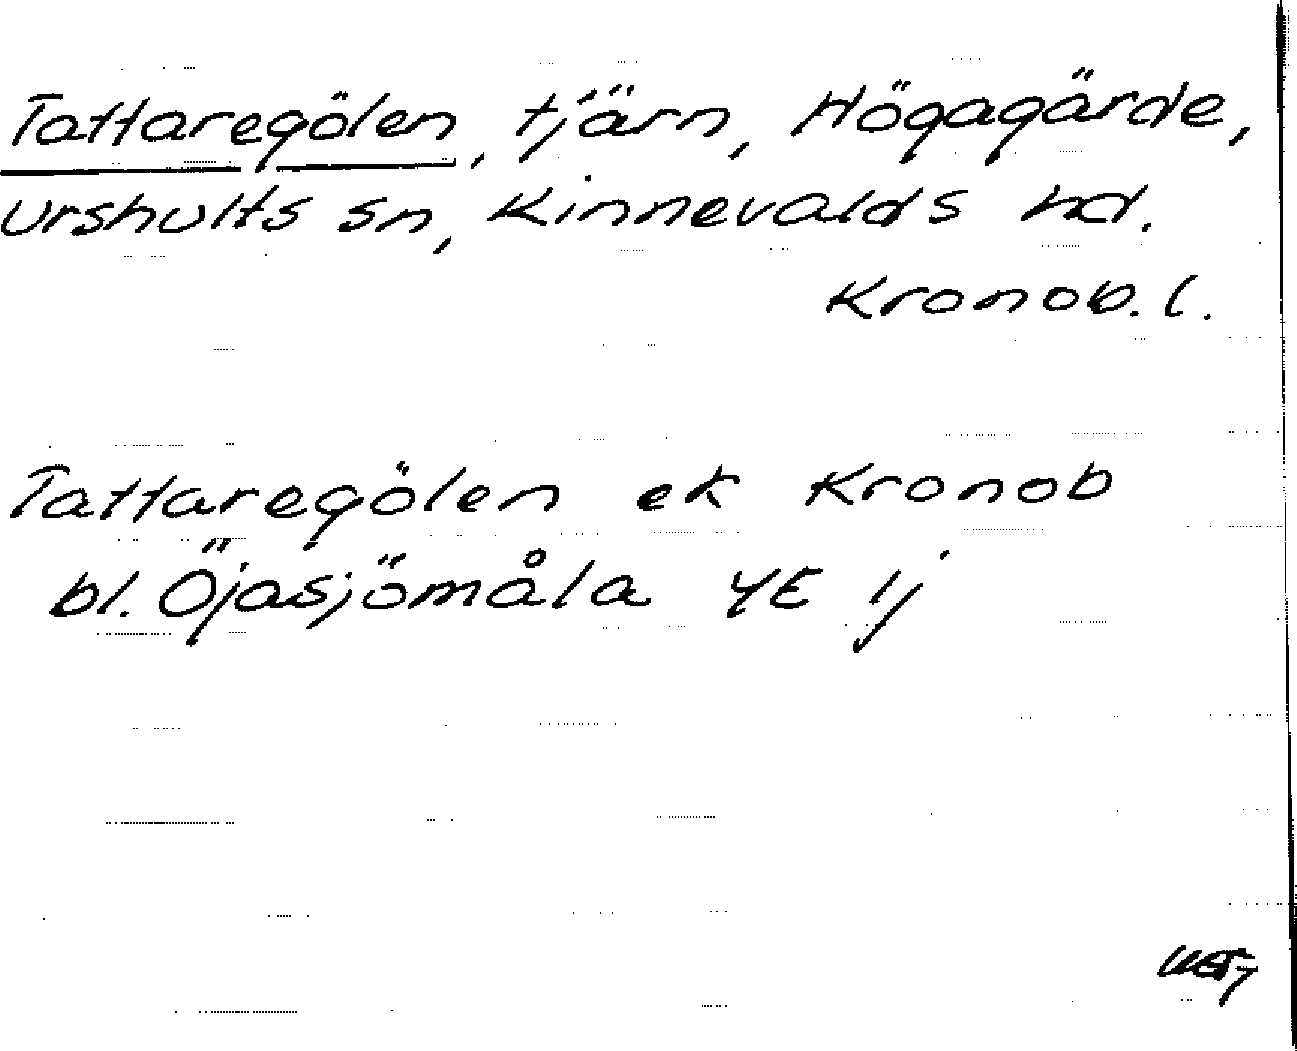 Tattaregölen, tjärn, Högagärde,
Urshults sn, Kinnevalds hd.
Kronob. l.
Tattaregölen ek Kronob
bl. Öjasjömåla 4E 1j